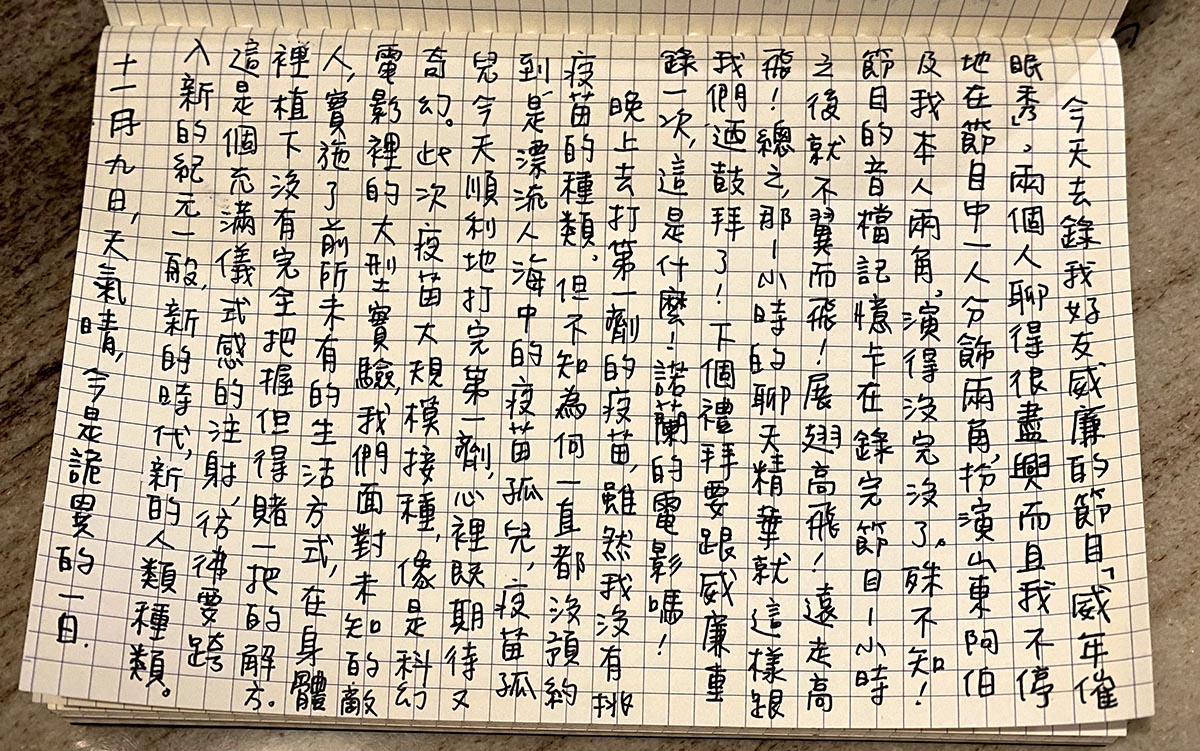 今天去錄我好友威廉的節目「威年催
眠秀」,兩個人聊得很盡興而且我不停
地在節目中一人分飾兩角,扮演山東阿伯
及我本人兩角,演得沒完沒了。殊不知!
節目的音檔記憶卡在錄完節目1小時
之後就不翼而飛!展翅高飛!遠走高
飛!總之,那1小時的聊天精華就這樣跟
我們迺鼓拜了!下個禮拜要跟威廉重
錄一次,這是什麼!諾蘭的電影嗎!
晚上去打第一劑的疫苗,雖然我沒有挑
疫苗的種類,但不知為何一直都沒預約
到,是漂流人海中的疫苗孤兒,疫苗孤
兒今天順利地打完第一劑,心裡既期待又
奇幻。此次疫苗大規模接種,像是科幻
電影裡的大型實驗,我們面對未知的敵
人,實施了前所未有的生活方式,在身體
裡植下沒有完全把握但得賭一把的解方。
這是個充滿儀式感的注射,彷彿要跨
入新的紀元一般,新的時代,新的人類種類。
十一月九日,天氣晴,今是詭異的一日.